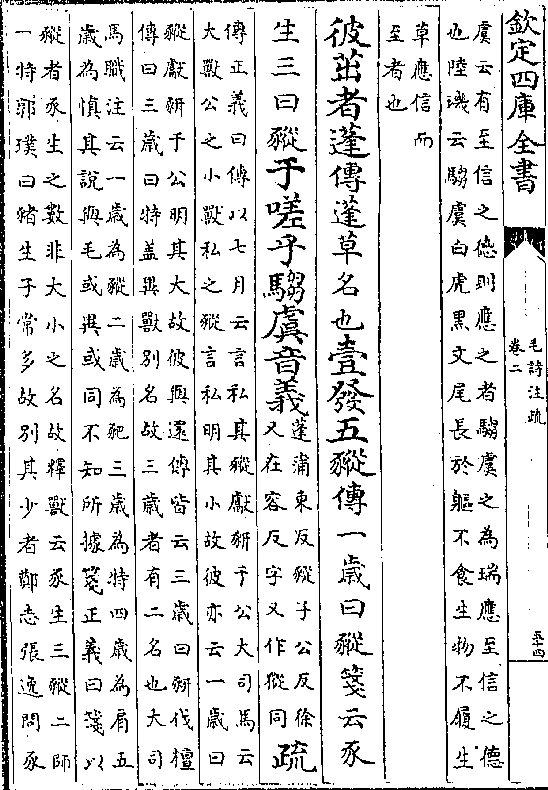 欽定四庫全書
毛詩注疏
卷二
五十四
虞云有至信之德則應之者騶虞之為瑞應至信之德
也陸璣云騶虞白虎黒文尾長於軀不食生物不履生
草應信而
至者也
彼茁者蓬傳蓬草名也壹發五豵傳一歲曰豵箋云豕
生三曰豵于嗟乎騶虞音義
蓬蒲東反豵子公反徐
又在容反字又作㹅同
疏
傳正義曰傳以七月云言私其豵獻豜于公大司馬云
大獸公之小獸私之豵言私明其小故彼亦云一歲曰
豵獻豜于公明其大故彼與還傳皆云三歲曰豜伐檀
傳曰三歲曰特蓋異獸別名故三歲者有二名也大司
馬職注云一歲為豵二歲為豝三歲為特四歲為肩五
歲為慎其說與毛或異或同不知所據箋正義曰箋以
豵者豕生之數非大小之名故釋獸云豕生三豵二師
一特郭璞曰豬生子常多故別其少者鄭志張逸問豕